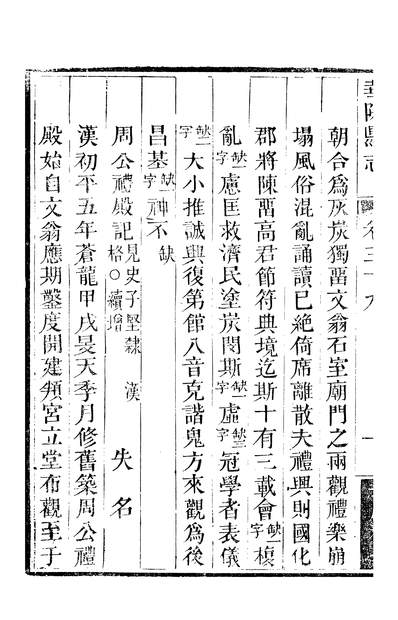 華陽縣志 卷三十九 一
朝合為灰炭獨畱文翁石室廟門之兩觀禮樂崩
塌風俗混亂誦讀已絶倚席離散夫禮興則國化
郡將陳畱高君節符典境迄斯十有三載會缺一字榱
亂缺一字慮匡救濟民塗炭閔斯缺一字虛缺三字冠學者表儀
缺一字大小推誠興復第館八音克諧鬼方來觀為後
昌基缺一字神不缺
周公禮殿記見史子堅隸格〇續增 漢 失名
漢初平五年蒼龍甲戌旻天季月修舊築周公禮
殿始自文翁應期鑿度開建頖宮立堂布觀至于